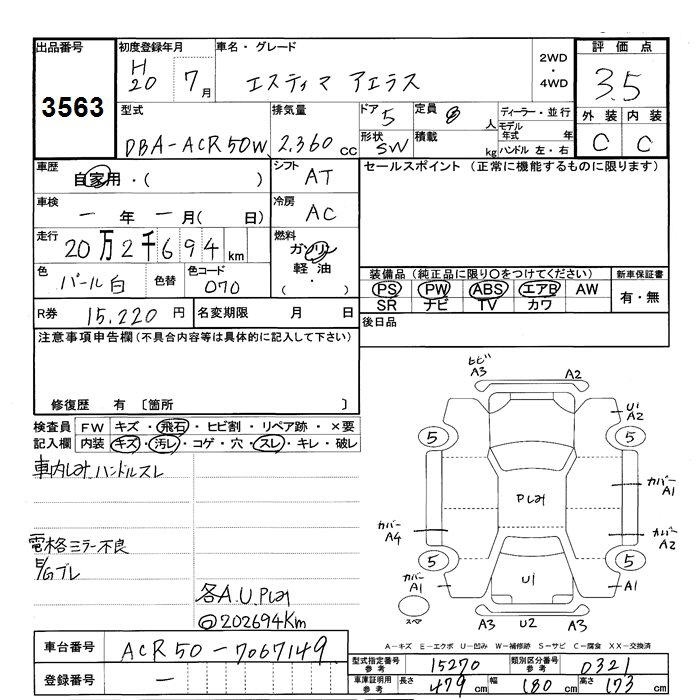 出品番号
3563
初度登録年月
H
20 7月
車名・グレード
エスティマ アエラス
2WD
・
4WD
評価点
3.5
外装 内装
C C
型式
DBA-ACR50W
排気量
2.360 cc
ドア 5
形状
SW
定員 8 人
積載 kg
ディーラー・並行
モデル
年式 年
ハンドル 左・右
車歴
自家用・( )
シフト
AT
車検
一 年 一 月( 日)
冷房
AC
走行
20万2千694 km
燃料
ガソリン
軽油
( ・ )
色
パール白
色替
色コード
070
セールスポイント (正常に機能するものに限ります)
装備品 (純正品に限り○をつけてください)
PS PW ABS エアB AW
SR ナビ TV カワ
新車保証書
有・無
R券 15,220 円
名変期限 月 日
後日品
注意事項申告欄(不具合内容等は具体的に記入して下さい)
修復歴 有 〔箇所 〕
検査員
記入欄
FW キズ・飛石・ヒビ割・リペア跡・×要
内装 キズ・汚レ・コゲ・穴・スレ・キレ・破レ
ハンドルスレ
電格ミラー不良
E/Gブレ
各A.U.
@202694Km
ヒビ
A3 A2
Ui
A2
5 5
カバー
A1
カバー
A4
カバー
A2
5 5
カバー
A1
U1
A1
A3 U2 A3
A-キズ E-エクボ U-凹み W-補修跡 S-サビ C-腐食 XX-交換済
車台番号
ACR50-7067149
登録番号
一
型式指定番号
参考
15270
類別区分番号
参考
0321
車庫証明用
参考
長さ 479 cm 幅 180 cm 高さ 173 cm